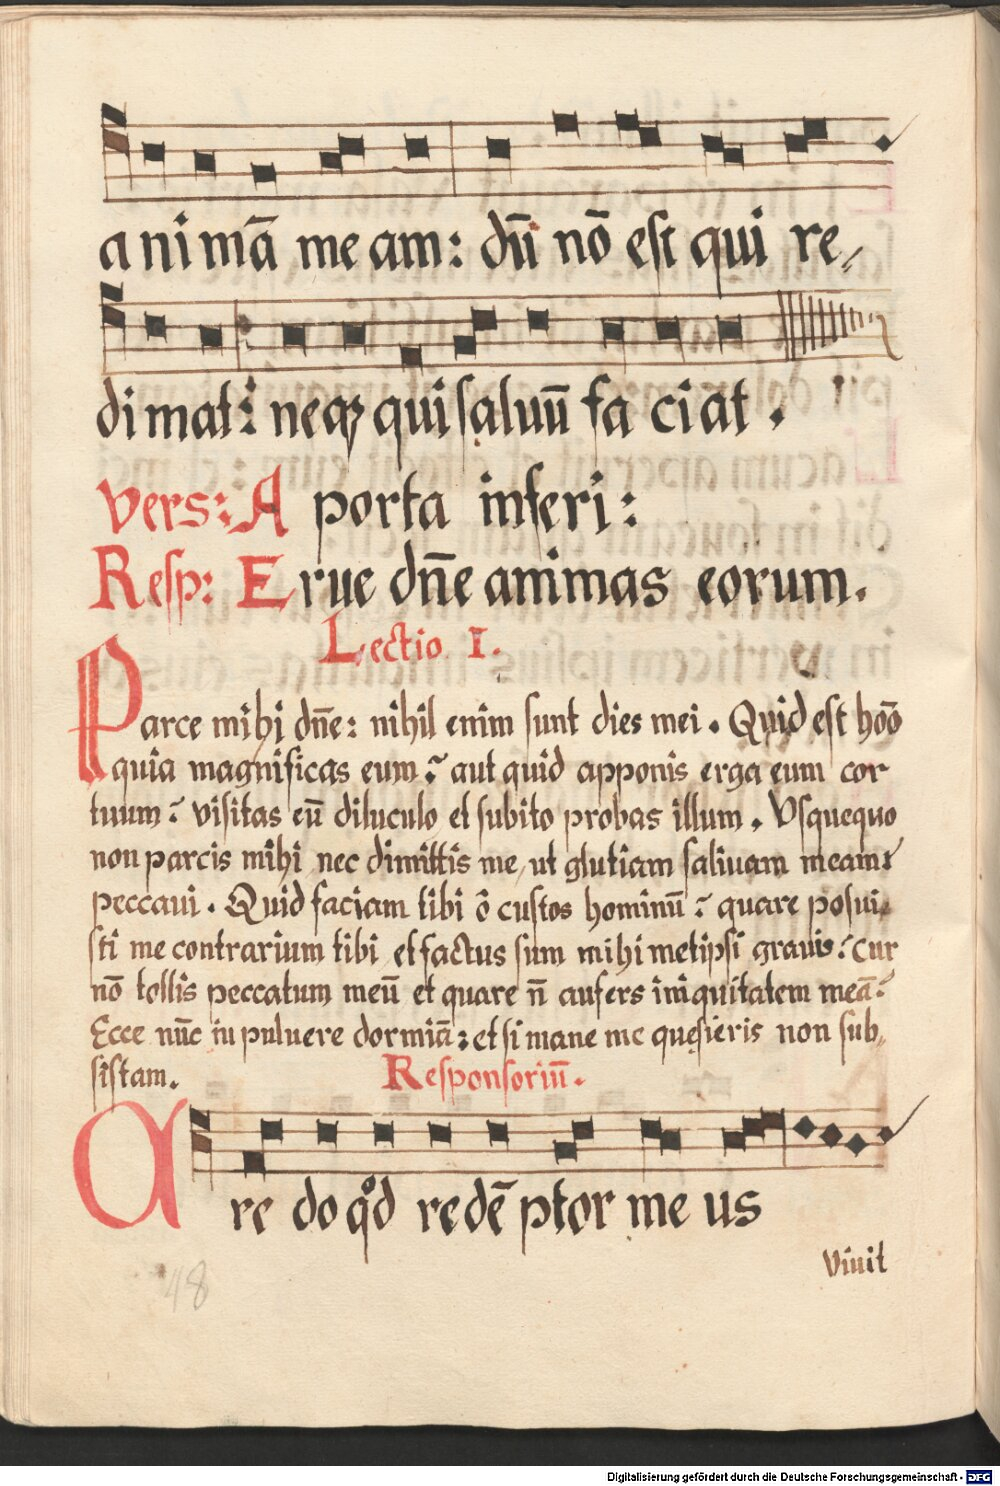 animā meam: dū nō est qui re-
dimat: neqꝫ qui saluū faciat.
Vers: A porta inferi:
Resp: Erue dn̄e animas eorum.
Lectio I.
Parce mihi dn̄e: nihil enim sunt dies mei. Quid est hoō
quia magnificas eum? aut quid apponis erga eum cor
tuum? visitas eū diluculo et subito probas illum. Vsquequo
non parcis mihi nec dimittis me, ut glutiam saliuam meam?
peccaui. Quid faciam tibi ō custos hominū? quare posui-
sti me contrarium tibi et factus sum mihi metipsi grauis? Cur
nō tollis peccatum meū et quare n̄ aufers iniquitatem meā?
Ecce nūc in puluere dormiā: et si mane me quesieris non sub-
sistam. Responsoriū.
Credo qͦd redēptor meus
Viuit
48
Digitalisierung gefördert durch die Deutsche Forschungsgemeinschaft - DFG